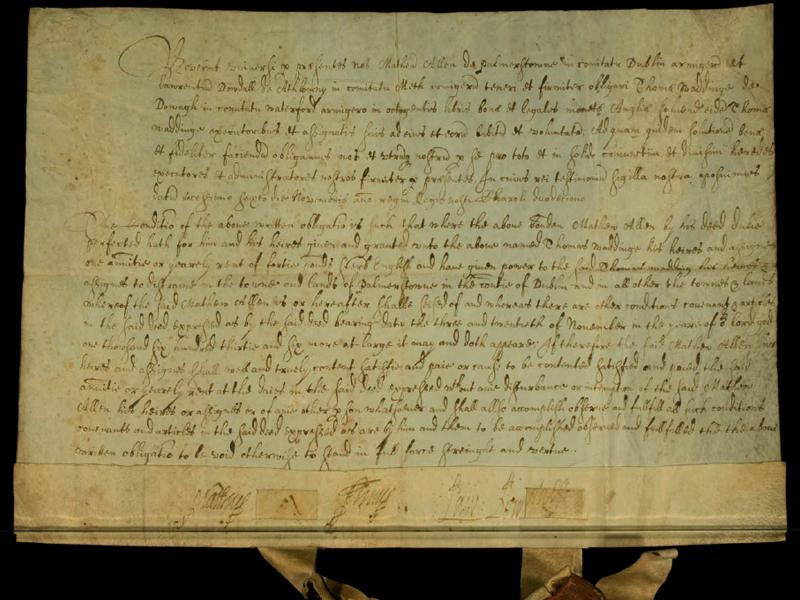 Noverint universi p presentes nos Mathew Allen de Palmerstowne in comitatu Dublin armigerū et
Laurentiū Dowdall de Athlumny in comitatu Meth armigerū teneri et firmiter obligari Thomæ Waddinge de
in comitatu waterford armigero in octogentis libris bonæ et legales monetæ Angliæ solvend eidē Thomæ
Waddinge executoribus et assignatis suis ad eius et eorū et voluntatē, Ad quam quidem solutionē bene
et fideliter faciendā obligamus nos et utrūq nostrū p se pro toto et in solido coniunctim et divisim heredes
executores et administratores nostros firmiter p presentes, In cuius rei testimoniū sigilla nostra apposuimus
datū vicesimo die Novembris anno regni Regis nostri Charoli duodecimo
The Conditiō of the above written obligatiō is such that where the above bounden Mathew Allen by his deed dulie
perfected hath for him and his heires given and granted unto the above named Thomas Waddinge his heires and assignes
one annuitie or yearely rent of fortie pounds sterl English and have given power to the said Thomas Wadding his heires &
assignes to distraine in the towne and lands of Palmerstowne in the countie of Dublin and in all other the townes & lands
whereof the said Mathew Allen is or hereafter shalbe seised of and whereas there are other conditions covenants & articles
in the said deed expressed as by the said deed bearing date the three and twentieth of November in the yeare of oʳ lord god
one thousand six hundred thirtie and six more at large it may and doth appeare, If therefore the said Mathew Allen his
heires and assignes shall well and truely content satisfie and paie or cause to be contented satisfied and paied the said
annuitie or yearely rent at the daies in the said deed expressed without anie disturbance or of the said Mathew
Allen his heires or assignes or of anie other pson whatsoever and shall allso accomplish observe and fullfill all such conditions
covenants and articles in the said deed expressed as are by him and them to be accomplished observed and fullfilled that the above
written obligatiō to be void otherwise to stand in full force strenght and vertue.